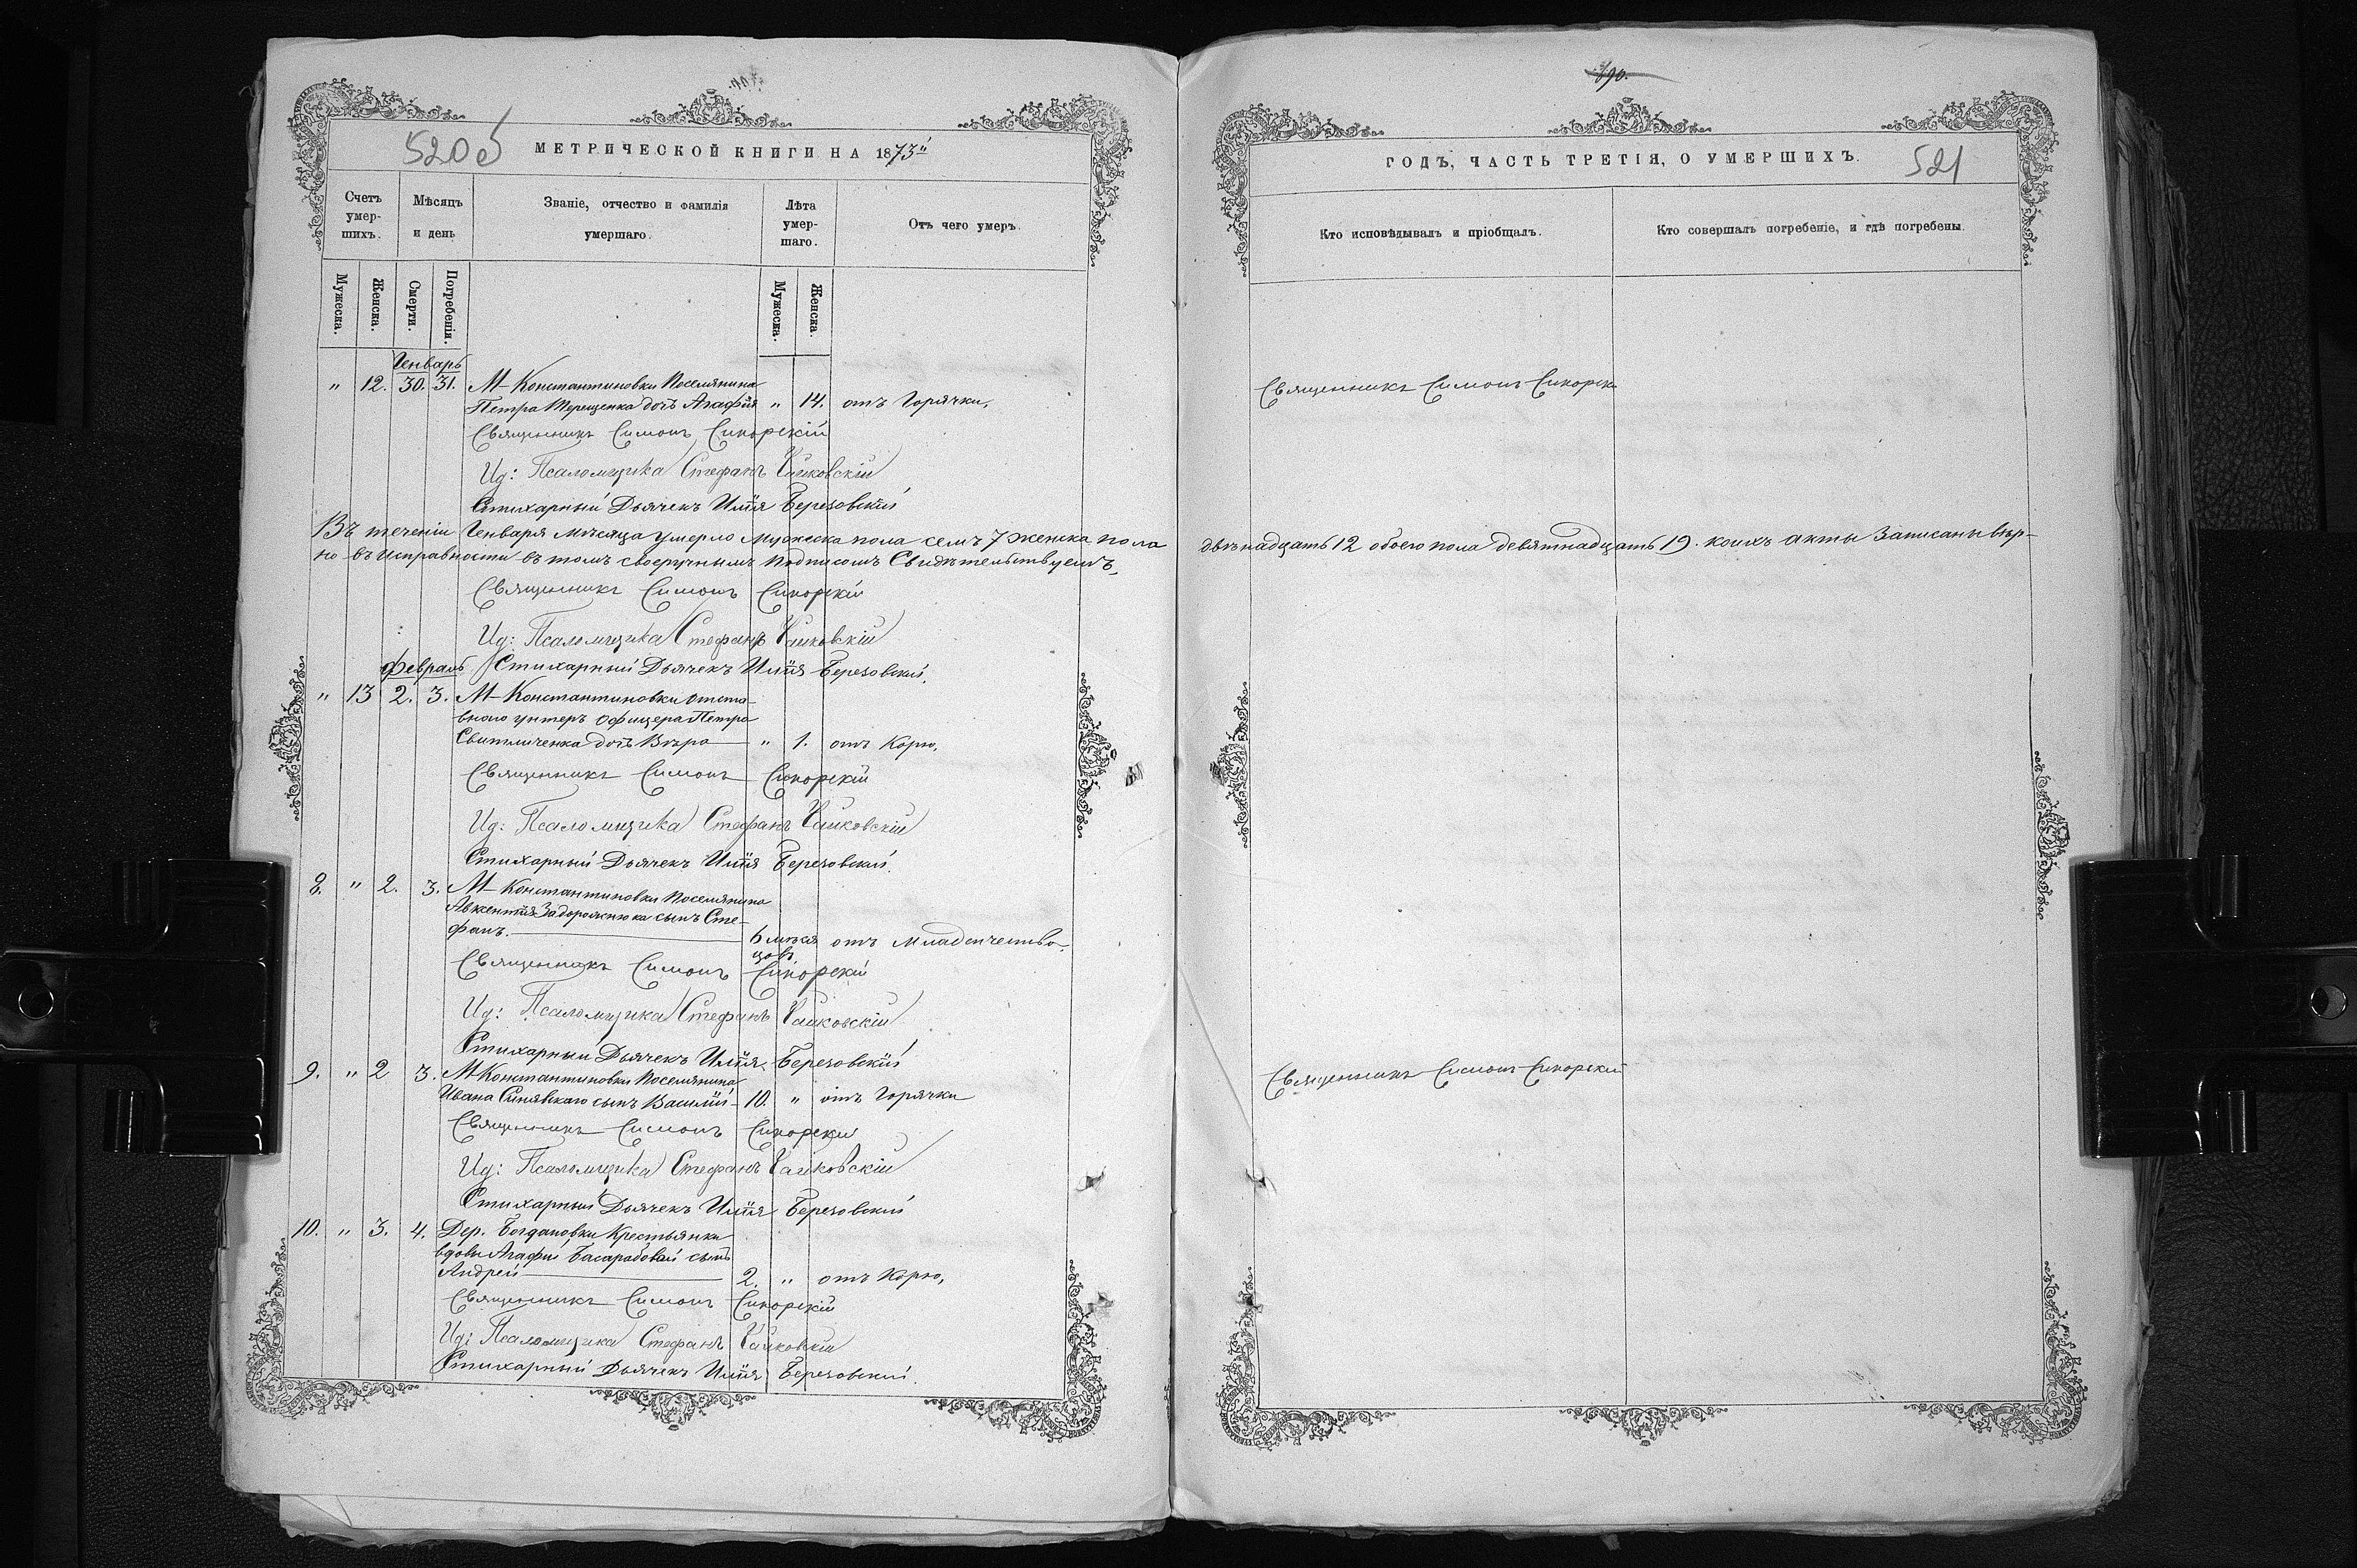 520об МЕТРИЧЕСКОЙ КНИГИ НА 1873й
Счетъ умер-шихъ.
Мѣсяцъ и день
Званіе, отчество и фамилія умершаго.
Лѣта умер-шаго.
Отъ чего умеръ.
Мужеска. Женска. Смерти. Погребенія. Мужеска. Женска.
Генварь
" 12. 30. 31. М– Константиновки Поселянина
Петра Терещенка дочь Агафія " 14. отъ Горячки,
Священникъ Симонъ Сикорскій
Ид: Псаломщика Стефанъ Чайковскій
Стихарный Дьячекъ Илія Березовскій
Въ теченіи Генваря месяца умерло Мужеска пола семь 7 женска пола
но въ исправности въ томъ своеручнымъ подписомъ Свидѣтельствуемъ,
Священникъ Симонъ Сикорскій
Ид: Псаломщика Стефанъ Чайковскій
Февраль Стихарный Дьячекъ Илія Березовскій.
" 13 2. 3. М– Константиновки отста-
внаго унтеръ офицера Петра
Свитличенка дочь Вѣра " 1. отъ Корю,
Священникъ Симонъ Сикорскій
Ид: Псаломщика Стефанъ Чайковскій
Стихарный Дьячекъ Илія Березовскій.
8. " 2. 3. М– Константиновки Поселянина
Авксентія Задорожнюка сынъ Сте-
фанъ. 6 мѣся отъ младенчества.
цов
Священникъ Симонъ Сикорскій
Ид: Псаломщика Стефанъ Чайковскій
Стихарный Дьячекъ Илія Березовскій
9. " 2 3. М Константиновки Поселянина
Ивана Синявскаго сынъ Василій – 10. " отъ Горячки
Священникъ Симонъ Сикорскій
Ид: Псаломщика Стефанъ Чайковскій
Стихарный Дьячекъ Илія Березовскій
10. " 3. 4. Дер. Богдановки Крестьянки
вдовы Агафіи Басарабовой сынъ
Андрей 2. " отъ Корю,
Священникъ Симонъ Сикорскій
Ид: Псаломщика Стефанъ Чайковскій
Стихарный Дьячекъ Илія Березовскій.
690.
ГОДЪ, ЧАСТЬ ТРЕТІЯ, О УМЕРШИХЪ. 521
Кто исповѣдывалъ и пріобщалъ.
Кто совершалъ погребеніе, и гдѣ погребены.
Священникъ Симонъ Сикорскі
двѣнадцать 12 обоего пола девятнадцать 19. коихъ акты Записаны вѣр-
Священникъ Симонъ Сикорскій